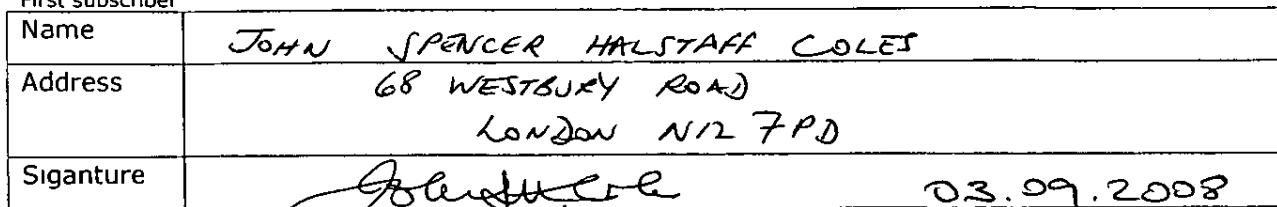 First subscriber
Name JOHN SPENCER HALSTAFF COLES
Address 68 WESTBURY ROAD
LONDON N12 7PD
Siganture 03.09.2008